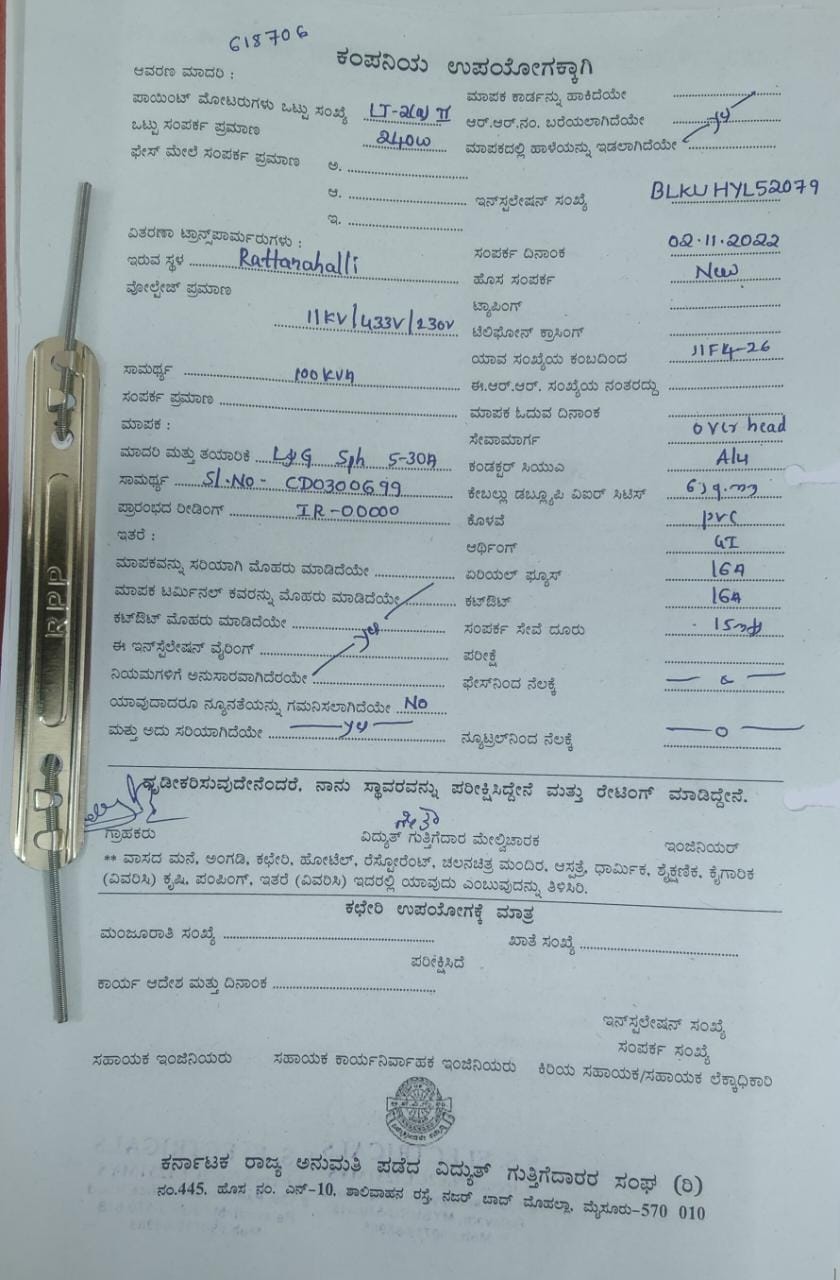 618706
ಕಂಪನಿಯ ಉಪಯೋಗಕ್ಕಾಗಿ
ಆವರಣ ಮಾದರಿ :
ಮಾಪಕ ಕಾರ್ಡನ್ನು ಹಾಕಿದೆಯೇ
ಪಾಯಿಂಟ್ ಮೋಟರುಗಳು ಒಟ್ಟು ಸಂಖ್ಯೆ LT-2(a) II
ಆರ್.ಆರ್.ನಂ. ಬರೆಯಲಾಗಿದೆಯೇ
ಒಟ್ಟು ಸಂಪರ್ಕ ಪ್ರಮಾಣ 240W
ಮಾಪಕದಲ್ಲಿ ಹಾಳೆಯನ್ನು ಇಡಲಾಗಿದೆಯೇ
ಫೇಸ್ ಮೇಲೆ ಸಂಪರ್ಕ ಪ್ರಮಾಣ ಅ.
ಆ.
ಇನ್‌ಸ್ಟಲೇಷನ್ ಸಂಖ್ಯೆ BLKUHYL52079
ಇ.
ವಿತರಣಾ ಟ್ರಾನ್ಸ್‌ಪಾರ್ಮರುಗಳು :
ಸಂಪರ್ಕ ದಿನಾಂಕ 02.11.2022
ಇರುವ ಸ್ಥಳ Rattanahalli
ಹೊಸ ಸಂಪರ್ಕ New
ವೋಲ್ಟೇಜ್ ಪ್ರಮಾಣ
ಟ್ಯಾಪಿಂಗ್
11KV/433V/230V
ಟೆಲಿಫೋನ್ ಕ್ರಾಸಿಂಗ್
ಯಾವ ಸಂಖ್ಯೆಯ ಕಂಬದಿಂದ
ಸಾಮರ್ಥ್ಯ 100KVA
ಈ.ಆರ್.ಆರ್. ಸಂಖ್ಯೆಯ ನಂತರದ್ದು
ಸಂಪರ್ಕ ಪ್ರಮಾಣ
ಮಾಪಕ ಓದುವ ದಿನಾಂಕ
ಮಾಪಕ :
ಸೇವಾಮಾರ್ಗ over head
ಮಾದರಿ ಮತ್ತು ತಯಾರಿಕೆ L&G Sph 5-30A
ಕಂಡಕ್ಟರ್ ಸಿಯುಎ Alu
ಸಾಮರ್ಥ್ಯ Sl.No- CD0300699
ಕೇಬಲ್ಲು ಡಬ್ಲ್ಯೂಪಿ ವಿಐರ್ ಸಿಟಿಸ್
ಪ್ರಾರಂಭದ ರೀಡಿಂಗ್ IR-00000
ಕೊಳವೆ pvc
ಇತರೆ :
ಆರ್ಥಿಂಗ್ GI
ಮಾಪಕವನ್ನು ಸರಿಯಾಗಿ ಮೊಹರು ಮಾಡಿದೆಯೇ
ಏರಿಯಲ್ ಫ್ಯೂಸ್ 16A
ಮಾಪಕ ಟರ್ಮಿನಲ್ ಕವರನ್ನು ಮೊಹರು ಮಾಡಿದೆಯೇ
ಕಟ್‌ಔಟ್ 16A
ಕಟ್‌ಔಟ್ ಮೊಹರು ಮಾಡಿದೆಯೇ
ಸಂಪರ್ಕ ಸೇವೆ ದೂರು
ಈ ಇನ್‌ಸ್ಟೆಲೇಷನ್ ವೈರಿಂಗ್
ಪರೀಕ್ಷೆ
ನಿಯಮಗಳಿಗೆ ಅನುಸಾರವಾಗಿದೆರಯೇ
ಫೇಸ್‌ನಿಂದ ನೆಲಕ್ಕೆ
ಯಾವುದಾದರೂ ನ್ಯೂನತೆಯನ್ನು ಗಮನಿಸಲಾಗಿದೆಯೇ No
ಮತ್ತು ಅದು ಸರಿಯಾಗಿದೆಯೇ
ನ್ಯೂಟ್ರಲ್‌ನಿಂದ ನೆಲಕ್ಕೆ
ದೃಡೀಕರಿಸುವುದೇನೆಂದರೆ, ನಾನು ಸ್ಥಾವರವನ್ನು ಪರೀಕ್ಷಿಸಿದ್ದೇನೆ ಮತ್ತು ರೇಟಿಂಗ್ ಮಾಡಿದ್ದೇನೆ.
ಗ್ರಾಹಕರು ವಿದ್ಯುತ್ ಗುತ್ತಿಗೆದಾರ ಮೇಲ್ವಿಚಾರಕ ಇಂಜಿನಿಯರ್
** ವಾಸದ ಮನೆ, ಅಂಗಡಿ, ಕಛೇರಿ, ಹೋಟೆಲ್, ರೆಸ್ಟೋರೆಂಟ್, ಚಲನಚಿತ್ರ ಮಂದಿರ, ಆಸ್ಪತ್ರೆ, ಧಾರ್ಮಿಕ, ಶೈಕ್ಷಣಿಕ, ಕೈಗಾರಿಕ
(ವಿವರಿಸಿ) ಕೃಷಿ, ಪಂಪಿಂಗ್, ಇತರೆ (ವಿವರಿಸಿ) ಇದರಲ್ಲಿ ಯಾವುದು ಎಂಬುವುದನ್ನು ತಿಳಿಸಿರಿ.
ಕಛೇರಿ ಉಪಯೋಗಕ್ಕೆ ಮಾತ್ರ
ಮಂಜೂರಾತಿ ಸಂಖ್ಯೆ ಖಾತೆ ಸಂಖ್ಯೆ
ಪರೀಕ್ಷಿಸಿದೆ
ಕಾರ್ಯ ಆದೇಶ ಮತ್ತು ದಿನಾಂಕ
ಇನ್‌ಸ್ಟಲೇಷನ್ ಸಂಖ್ಯೆ
ಸಂಪರ್ಕ ಸಂಖ್ಯೆ
ಸಹಾಯಕ ಇಂಜಿನಿಯರು ಸಹಾಯಕ ಕಾರ್ಯನಿರ್ವಾಹಕ ಇಂಜಿನಿಯರು ಕಿರಿಯ ಸಹಾಯಕ/ಸಹಾಯಕ ಲೆಕ್ಕಾಧಿಕಾರಿ
ಕರ್ನಾಟಕ ರಾಜ್ಯ ಅನುಮತಿ ಪಡೆದ ವಿದ್ಯುತ್ ಗುತ್ತಿಗೆದಾರರ ಸಂಘ (ರಿ)
ನಂ.445, ಹೊಸ ನಂ. ಎನ್-10, ಶಾಲಿವಾಹನ ರಸ್ತೆ, ನಜರ್ ಬಾದ್ ಮೊಹಲ್ಲಾ, ಮೈಸೂರು-570 010